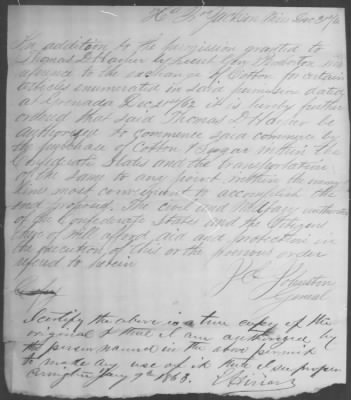 Hd Qrs Jackson Miss Dec 31/62
In addition to the permission granted to
Thomas D Harper by Lieut Gen Pemberton in
reference to the exchange of Cotton for certain
articles enumerated in said permission dated
at Grenada Dec 1862 it is hereby further
ordered that said Thomas D Harper be
authorized to commence said commerce by
the purchase of Cotton & Sugar within the
Confederate States and the transportation
of the same to any point within the enemy's
lines most convenient to accomplish the
end proposed. The civil and Military authorities
of the Confederate States and the Citizens
will afford aid and protection in
the execution of this or the previous order
referred to herein
J E Johnston
General
I certify the above is a true copy of the
original & that I am authorized by
the person named in the above permit
to make any use of it that I see proper
Jany 9th 1863.